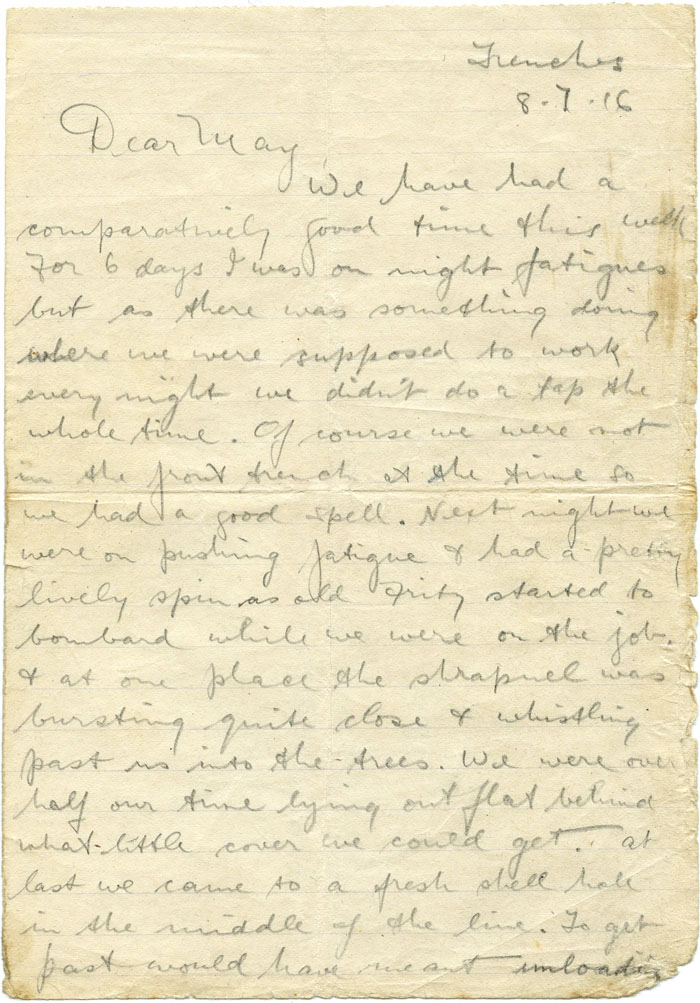 Trenches
8.7.16
Dear May
We have had a
comparatively good time this week
For 6 days I was on night fatigues
but as there was something doing
where we were supposed to work
every night we didn't do a tap the
whole time. Of course we were not
in the front trench at the time so
we had a good spell. Next night we
were on pushing fatigue & had a pretty
lively spin as old Fritz started to
bombard while we were on the job.
& at one place the shrapnel was
bursting quite close & whistling
past us into the trees. We were over
half our time lying out flat behind
what little cover we could get. at
last we came to a fresh shell hole
in the middle of the line. To get
past would have meant unloading